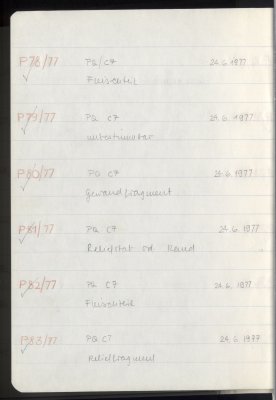 P78/77 PQ/C7 24.6.1977
Fleischteil
P79/77 PQ C7 24.6.1977
unbestimmbar
P80/77 PQ C7 24.6.1977
Gewandfragment
P81/77 PQ C7 24.6.1977
od
P82/77 PQ C7 24.6.1977
Fleischteil
P83/77 PQ C7 24.6.1977
Relieffragment